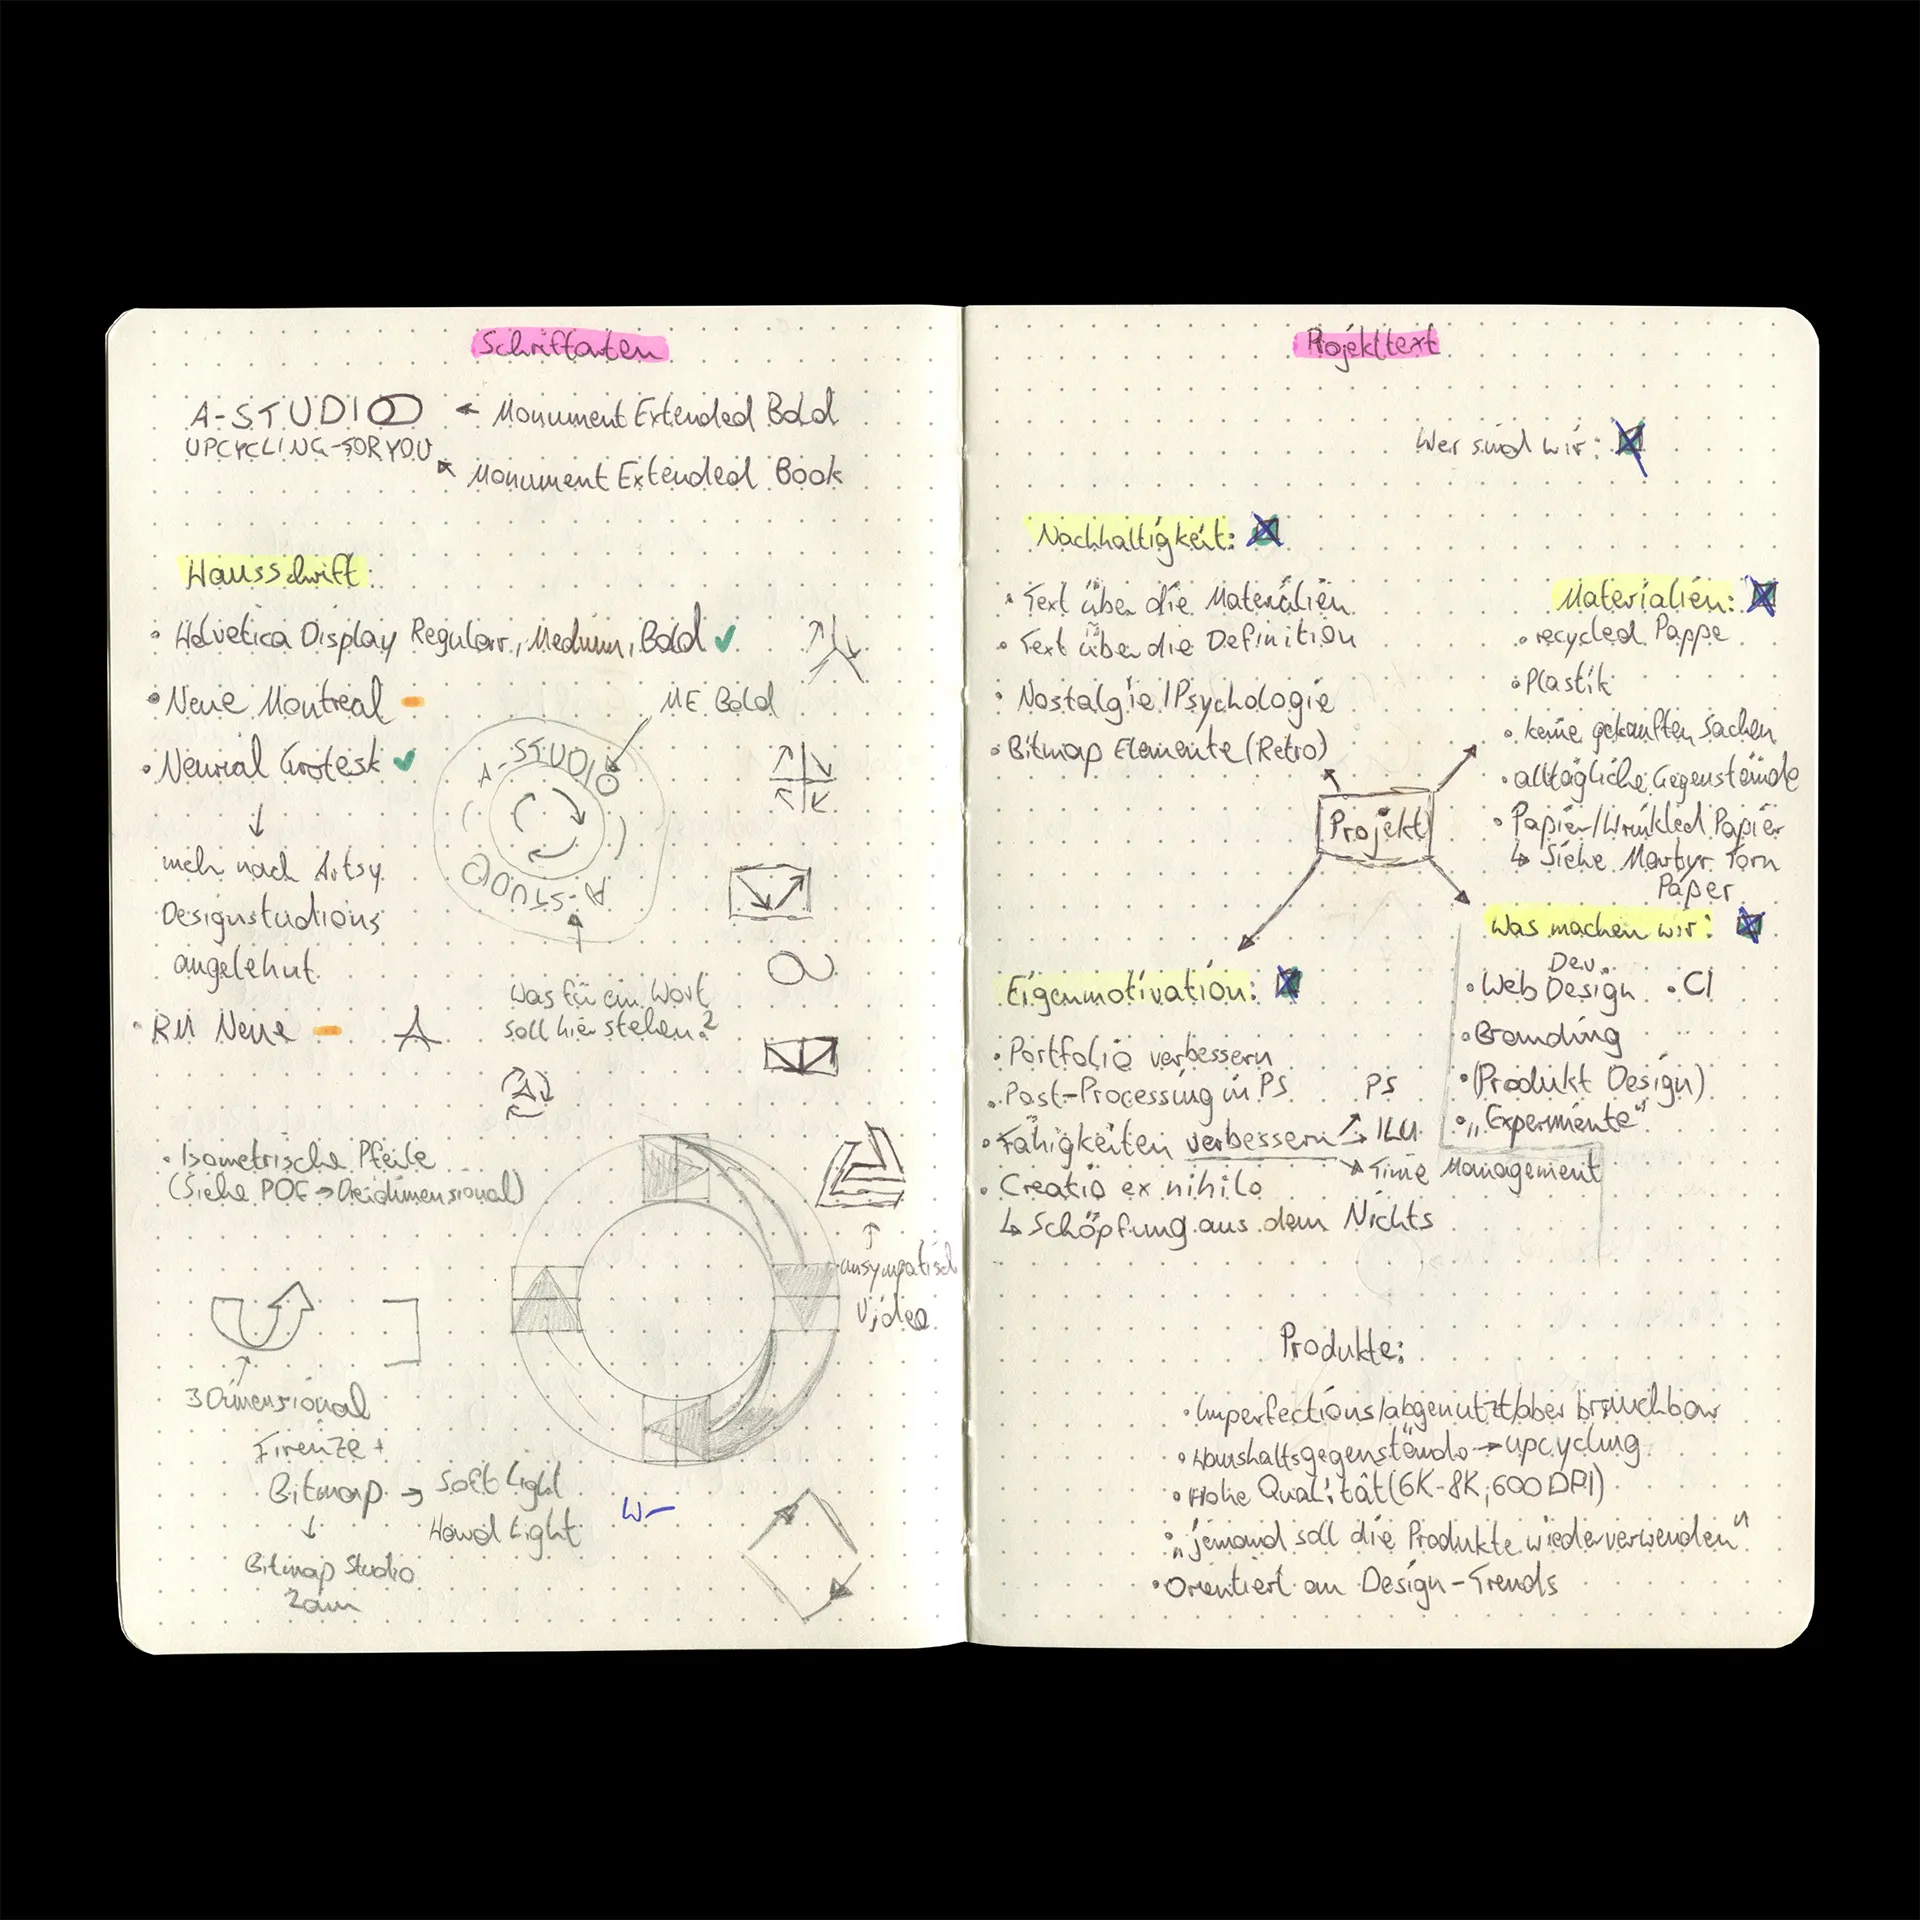 Schriftarten
A-STUDIO ← Monument Extended Bold
UPCYCLING-FOR YOU
Monument Extended Book
Hausschrift:
• Helvetica Display Regular, Medium, Bold ✓
• Neue Montreal –
ME Bold
• Neurial Grotesk ✓
A-STUDIO
A-STUDIO
↓
meh nach Artsy
Designstudions
angelehnt
Was für ein Wort
soll hier stehen?
• RM Neue –
A
• Isometrische Pfeile
(Siehe PDF → Dreidimensional)
unsympatisch
Video
3Dimensional
Firenze +
Bitmap → Soft Light
Hard Light
↓
Bitmap Studio
2am
Projekttext
Wer sind wir:
Nachhaltigkeit:
• Text über die Materialien
• Text über die Definition
• Nostalgie/Psychologie
• Bitmap Elemente (Retro)
Materialien:
• recycled Pappe
• Plastik
• keine gekauften Sachen
• alltägliche Gegenstände
• Papier/Wrinkled Papier
↳ Siehe Martyr Torn
Paper
Projekt
Was machen wir:
Dev.
• Web Design • CI
• Branding
• (Produkt Design)
• „Experimente"
Eigenmotivation:
• Portfolio verbessern
• Post-Processing in PS
• Fähigkeiten verbessern
PS
ILU
Time Management
• Creatio ex nihilo
↳ Schöpfung aus dem Nichts
Produkte:
• Imperfections/abgenutzt/aber brauchbar
• Haushaltsgegenstände → upcycling
• Hohe Qualität (6K-8K, 600 DPI)
• „jemand soll die Produkte wiederverwenden"
• Orientiert an Design-Trends